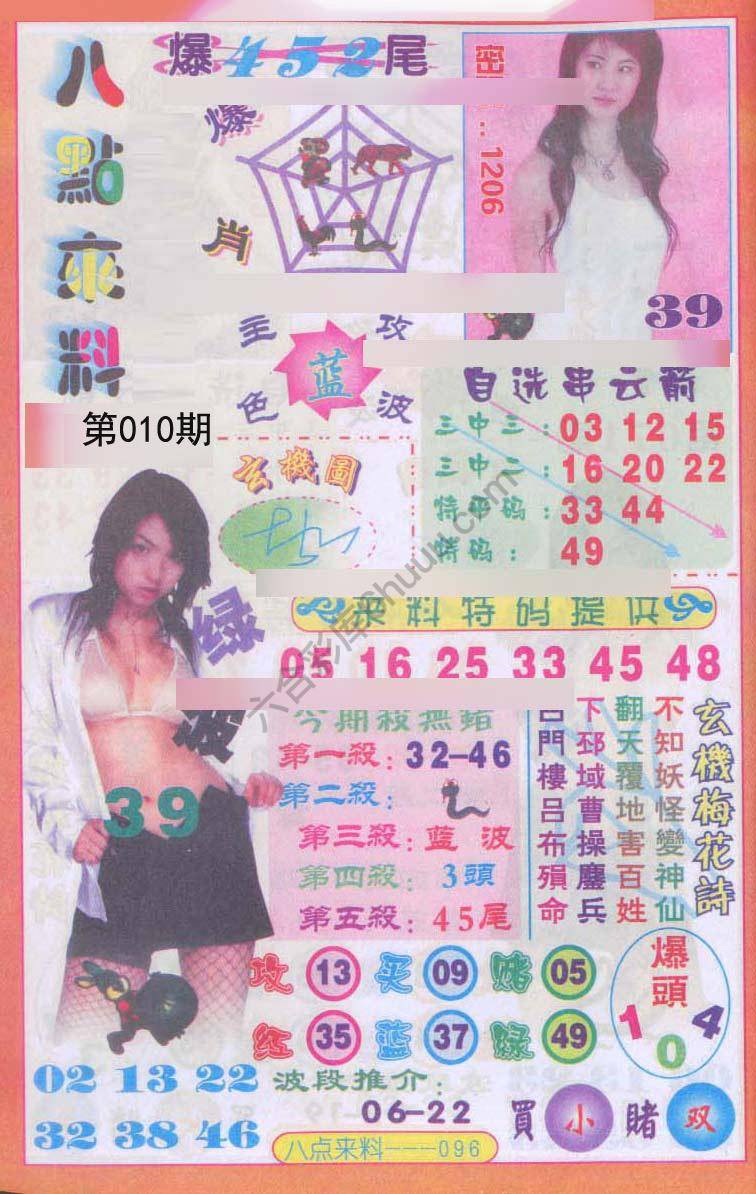 八點來料
爆452尾
爆肖
密
1206
39
主攻
色波
蓝
第010期
玄機圖
自选串云箭
三中三：03 12 15
三中二：16 20 22
特码：33 44
特码：49
绿波
39
来料特码提供
05 16 25 33 45 48
今期殺無錯
第一殺：32-46
第二殺：
第三殺：蓝 波
第四殺：3頭
第五殺：45尾
玄機梅花詩
不知妖怪變神仙
翻天覆地害百姓
下邳域曹操鏖兵
門樓呂布殞命
攻 13 买 09 赌 05
红 35 蓝 37 绿 49
爆頭
1 0 4
02 13 22
32 38 46
波段推介：
06-22
買 小 賭 双
八点来料---096
六合彩库6huuu.com